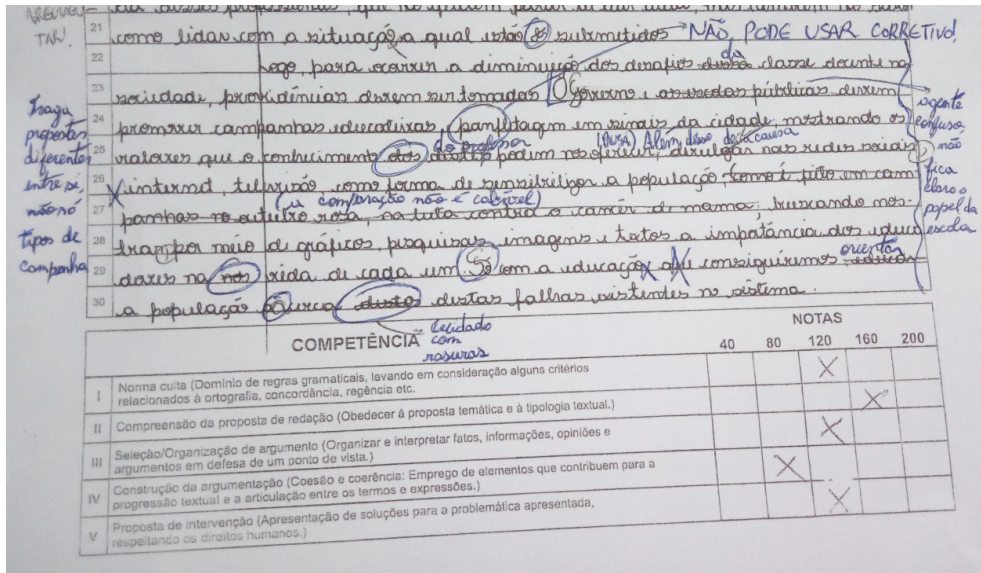 TAR!
21 como lidar com a situação a qual estão submetidos NÃO PODE USAR CORRETIVO!
da
22 Logo, para ocorrer a diminuição dos desafios dessa classe docente na
23 sociedade, providências devem ser tomadas O Governo e as escolas públicas devem
24 promover campanhas educativas, panfletagem em sinais da cidade, mostrando os
do professor (PUXA) Além disso dessa causa
25 valores que o conhecimento dos destes podem nos oferecer, divulgar nas redes sociais
26 internet, televisão, como forma de sensibilizar a população, como é feito em cam
(a comparação não é cabível)
27 panhas no outubro rosa, na luta contra o cancêr de mama; buscando mos-
28 trar por meio de gráficos, pesquisas, imagens e textos a impatância dos educa
orientar
29 dores na nos vida de cada um Só com a educação que conseguiremos educar
30 a população acerca destes destas falhas existentes no sistema.
Traga
propostas
diferentes
entre si,
não só
tipos de
campanha
agente
confuso,
não
fica
claro o
papel da
escola
Cuidado
com
rasuras
COMPETÊNCIA
NOTAS
40 80 120 160 200
I Norma culta (Domínio de regras gramaticais, levando em consideração alguns critérios
relacionados à ortografia, concordância, regência etc.
X
II Compreensão da proposta de redação (Obedecer à proposta temática e à tipologia textual.)
X
III Seleção/Organização de argumento (Organizar e interpretar fatos, informações, opiniões e
argumentos em defesa de um ponto de vista.)
X
IV Construção da argumentação (Coesão e coerência: Emprego de elementos que contribuem para a
progressão textual e a articulação entre os termos e expressões.)
X
V Proposta de intervenção (Apresentação de soluções para a problemática apresentada,
respeitando os direitos humanos.)
X